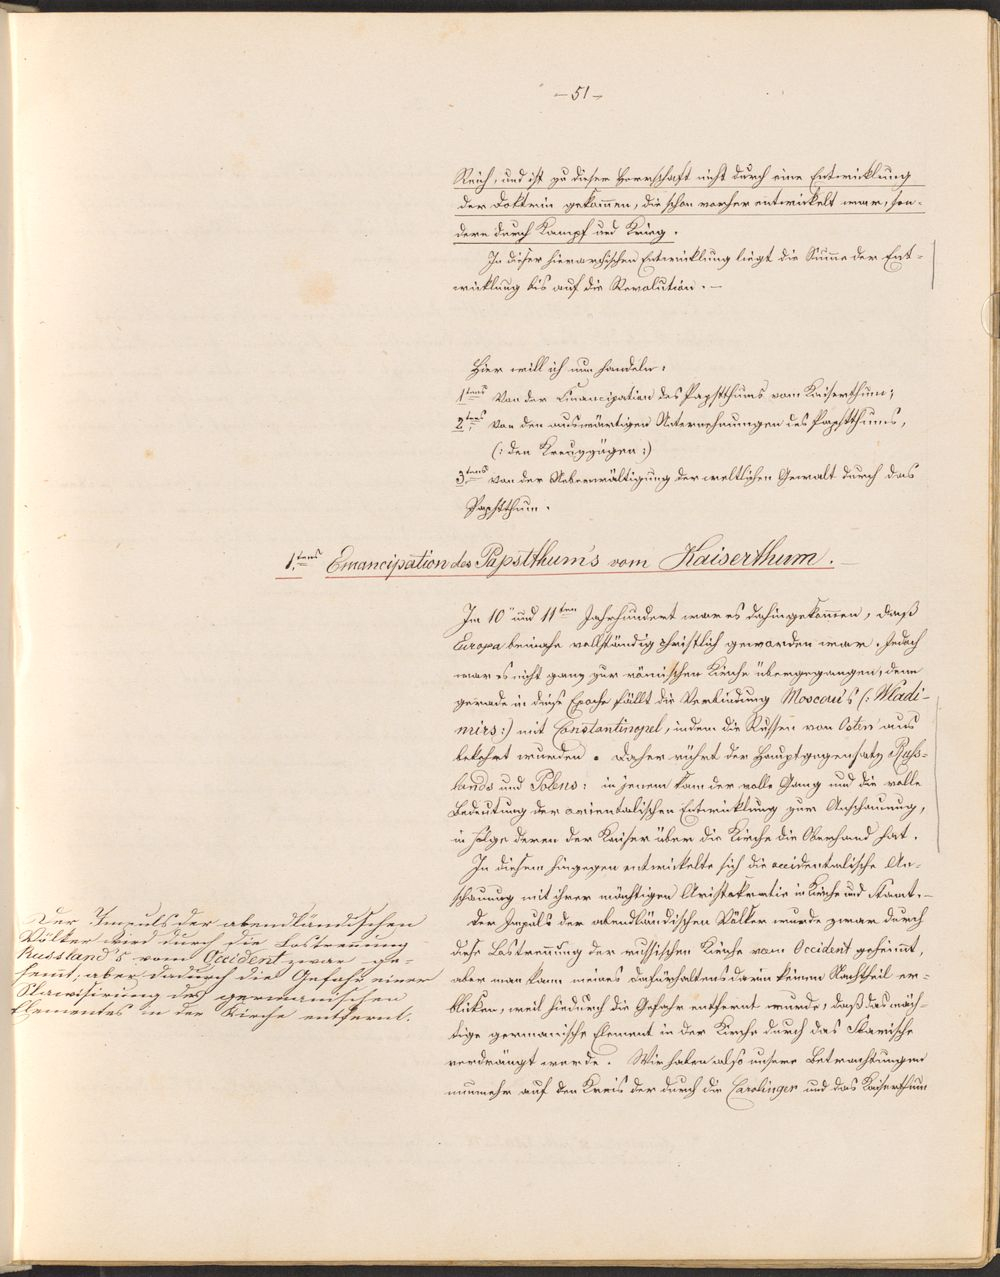 - 51 -
Reich, und ist zu dieser Herrschaft nicht durch eine Entwicklung
der Doktrin gekommen, die schon vorher entwickelt war, son-
dern durch Kampf und Krieg.
In dieser hierarchischen Entwicklung liegt die Summe der Ent-
wicklung bis auf die Revolution. —
Hier will ich nun handeln:
1tens Von der Emancipation des Papstthums vom Kaiserthum;
2tens Von den auswärtigen Unternehmungen des Papstthums,
(: den Kreuzzügen :)
3tens Von der Ueberwältigung der weltlichen Gewalt durch das
Papstthum.
1.tens Emancipation des Papstthum's vom Kaiserthum. —
Im 10" und 11ten Jahrhundert war es dahingekommen, daß
Europa beinahe vollständig christlich geworden war. Jedoch
war es nicht ganz zur römischen Kirche übergegangen, denn
gerade in diese Epoche fällt die Verbindung Moscou's (: Wladi-
mirs :) mit Constantinopel, indem die Russen von Osten aus
bekehrt wurden. Daher rührt der Hauptgegensatz Russ-
lands und Polens: in jenem kam der volle Gang und die volle
Bedeutung der orientalischen Entwicklung zur Anschauung,
in Folge deren der Kaiser über die Kirche die Oberhand hat.
In diesem hingegen entwickelte sich die occidentalische An-
schauung mit ihrer mächtigen Aristokratie in Kirche und Staat. —
Der Impuls der abendländischen Völker wurde zwar durch
diese Lostrennung der russischen Kirche vom Occident gehemmt,
aber man kann meines Dafürhaltens darin keinen Nachtheil er-
blicken, weil hiedurch die Gefahr entfernt wurde, daß das mäch-
tige germanische Element in der Kirche durch das Slavische
verdrängt werde. Wir haben also unsere Betrachtungen
nunmehr auf den Kreis der durch die Carolinger und das Kaiserthum
Der Impuls der abendländischen
Völker wird durch die Lostrennung
Russland's vom Occident zwar ge-
hemmt, aber dadurch die Gefahr einer
Slawisirung des germanischen
Elementes in der Kirche entfernt.